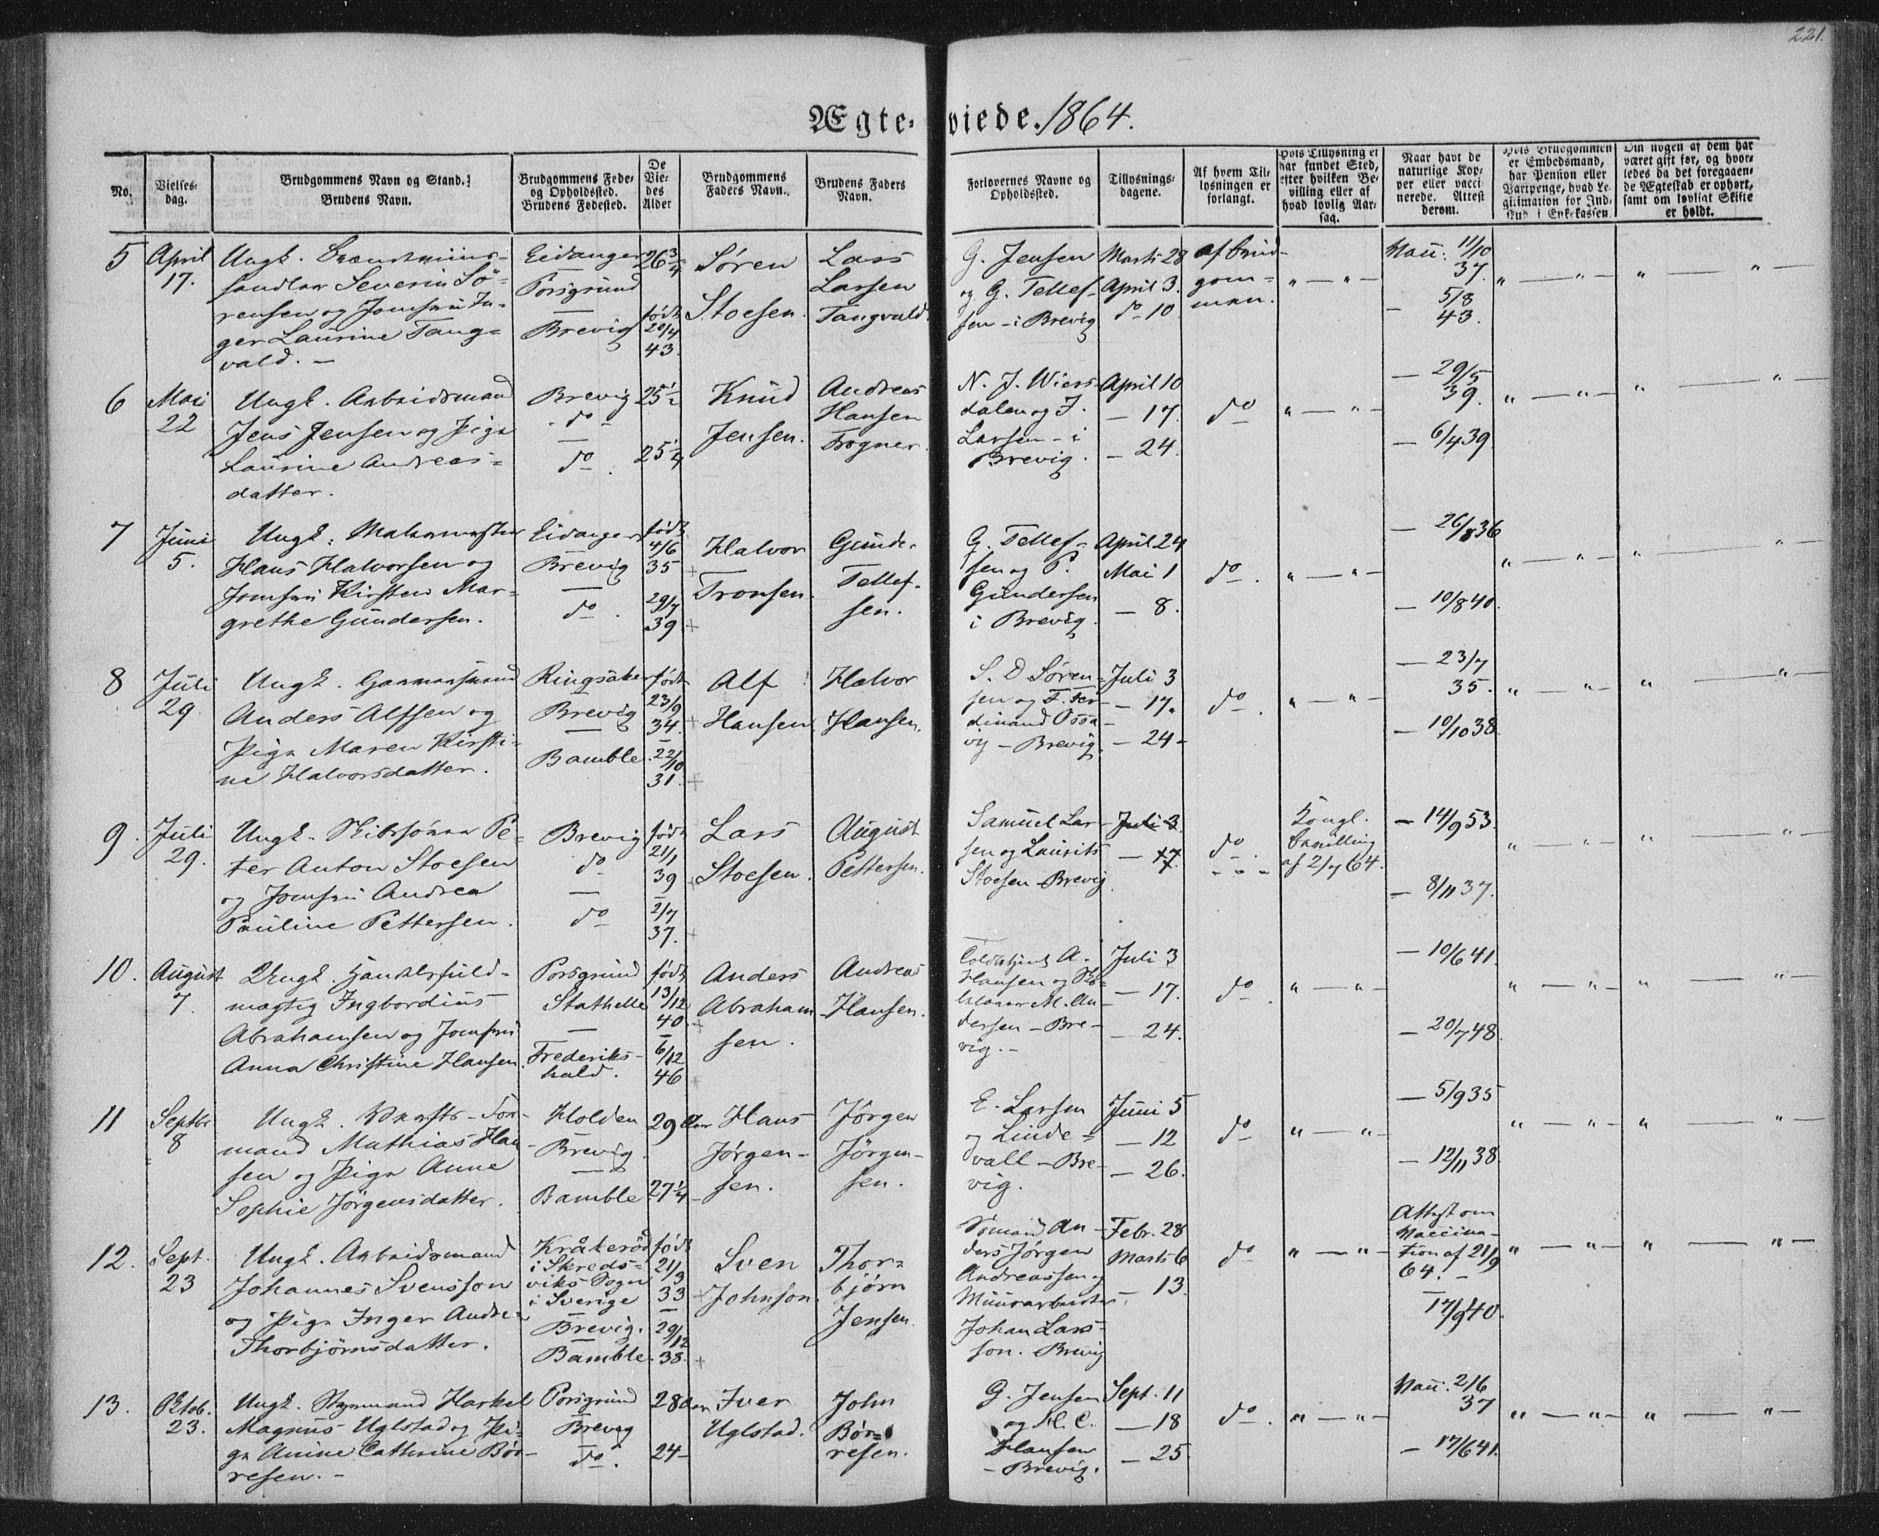 221.
Ægte-viede. 1864.
No.
Vielses-
dag.
Brudgommens Navn og Stand.
Brudens Navn.
Brudgommens Føde-
og Opholdssted.
Brudens Fødested.
De
Vie-
des
Alder
Brudgommens
Faders Navn.
Brudens Faders
Navn.
Forlovernes Navne og
Opholdssted.
Tillysnings-
dagene.
Af hvem Til-
lysningen er
forlangt.
Hvis Tillysning ei
har fundet Sted,
efter hvilken Be-
villing eller af
hvad lovlig Aar-
sag.
Naar havt de
naturlige Kop-
per eller vacci-
nerede. Attest
derom.
Hvis Brudgommen
er Embedsmand,
har Pension eller
Vartpenge, hvad Le-
gitimation for Ind-
skud i Enkekassen.
Om nogen af dem har
været gift før, og hvor-
ledes da det foregaaen-
de Ægteskab er ophørt,
samt om lovligt Skifte
er holdt.
5
April
17.
Ungk.
handler Severin Sö-
rensen og Jomfru In-
ger Laurine Tang-
vald. —
Eidanger
Porsgrund
—
Brevig
26 3/4
født
20/4
43.
Søren
Stoesen.
Lars
Larsen
Tangvald.
G. Jensen
og G. Tellef-
sen - i Brevig
Marts 28
April 3.
do 10.
af Brud-
gom-
men.
" — " —
Vacc. 11/10
37.
— 5/8
43.
" — " —
" — "
6
Mai
22
Ungk. Arbeidsmand
Jens Jensen og Pige
Laurine Andreas-
datter.
Brevig
do
—
do.
25 1/2
25 1/4
Knud
Jensen.
Andreas
Hansen
Fogner.
N. J. Wiers-
dalen og J.
Larsen - i
Brevig.
April 10
— 17.
— 24.
do
" — " —
— 29/5
39.
— 6/4 39.
" — " —
" — "
7
Juni
5.
Ungk.
Hans Halvorsen og
Jomfru Kirsten Mar-
grethe Gundersen.
Eidanger
Brevig
—
do.
født
4/6
35
29/7
39
Halvor
Tronsen.
Gunde.
Tellef-
sen.
G. Tellef-
sen og P.
Gundersen
i Brevig.
April 24
Mai 1
— 8.
do.
" — " —
— 26/8 36
— 10/8 40.
" — " —
" — "
8
Juli
29.
Ungk. Garmersvend
Anders Alfsen og
Pige Maren Kirsti-
ne Halvorsdatter.
Ringsaker
Brevig
—
Bamble.
født
23/9
34.
—
22/10
31.
Alf
Hansen.
Halvor
Hansen.
S. D Søren-
sen og F. Fer-
dinand Ossa-
vy - Brevig.
Juli 3
— 17.
— 24 -
do.
" — " —
— 23/7
35.
— 10/10 38.
" — " —
" — "
9.
Juli
29.
Ungk. Skibsfører Pe-
ter Anton Stoesen
og Jomfru Andrea
Pauline Pettersen.
Brevig
do
—
do
født
21/1
39
—
2/7
37.
Lars
Stoesen.
August
Pettersen.
Samuel Lar-
sen og Laurits
Stoesen - Brevig.
Juli 3.
— 17
do.
Kongl.
Bevilling
af 2/7 64.
— 14/9 53.
— 8/11 37.
" — " —
" — "
10.
August
7.
Ungk. Handelsfuld-
mægtig Ingbordius
Abrahamsen og Jomfru
Anna Christine Hansen.
Porsgrund
Stathelle
—
Frederiks-
hald.
født
13/12
40.
—
6/12
46
Anders
Abraham-
sen.
Andreas
Hansen.
A.
Hansen og
M. An-
dersen - Bre-
vig. -
Juli 3
— 17.
— 24.
do.
" — " —
— 10/6 41.
— 20/7 48.
" — " —
" — "
11
Septbr
8
Ungk. Værfts-For-
mand Mathias Han-
sen og Pige Anne
Sophie Jørgensdatter.
Holden
Brevig.
—
Bamble
29 Aar
27 1/4
Hans
Jørgen-
sen.
Jørgen
Jørgen-
sen.
E. Larsen
og Linde-
vall - Bre-
vig.
Juni 5
— 12
— 26.
do
" — " —
— 5/9 35
— 12/11 38.
" — " —
" — "
12.
Sept.
23
Ungk. Arbeidsmand
Johannes Svensson
og Pige Inger Andrea
Thorbjørnsdatter.
Kråkeröd
i Skreds-
viks Sogn
i Sverige
Brevig.
Bamble.
født
21/3
33
—
29/12
38.
Sven
Johnson.
Thor-
bjørn
Jensen.
Sømand An-
ders Jørgen
Andreassen og
Muurarbeider
Johan Lars-
son. Brevig
Febr. 28
Marts 6
— 13.
do
" — " —
Attest om
Vaccina-
tion af 21/9
64. -
— 17/9 40.
" — " —
" — "
13.
Oktob.
23.
Ungk. Styrmand Harkel
Magnus Uglstad og Pi-
ge Anine Cathrine Bør-
resen. -
Porsgrund
Brevig
do.
28 Aar
24 -
Iver
Uglstad.
John
Bør-
resen.
G. Jensen
og H. C.
Hansen
- Brevig.
Sept. 11
— 18
— 25
do.
" — " —
Vacc. 21/6
37
— 17/6 41.
" — " —
" — "